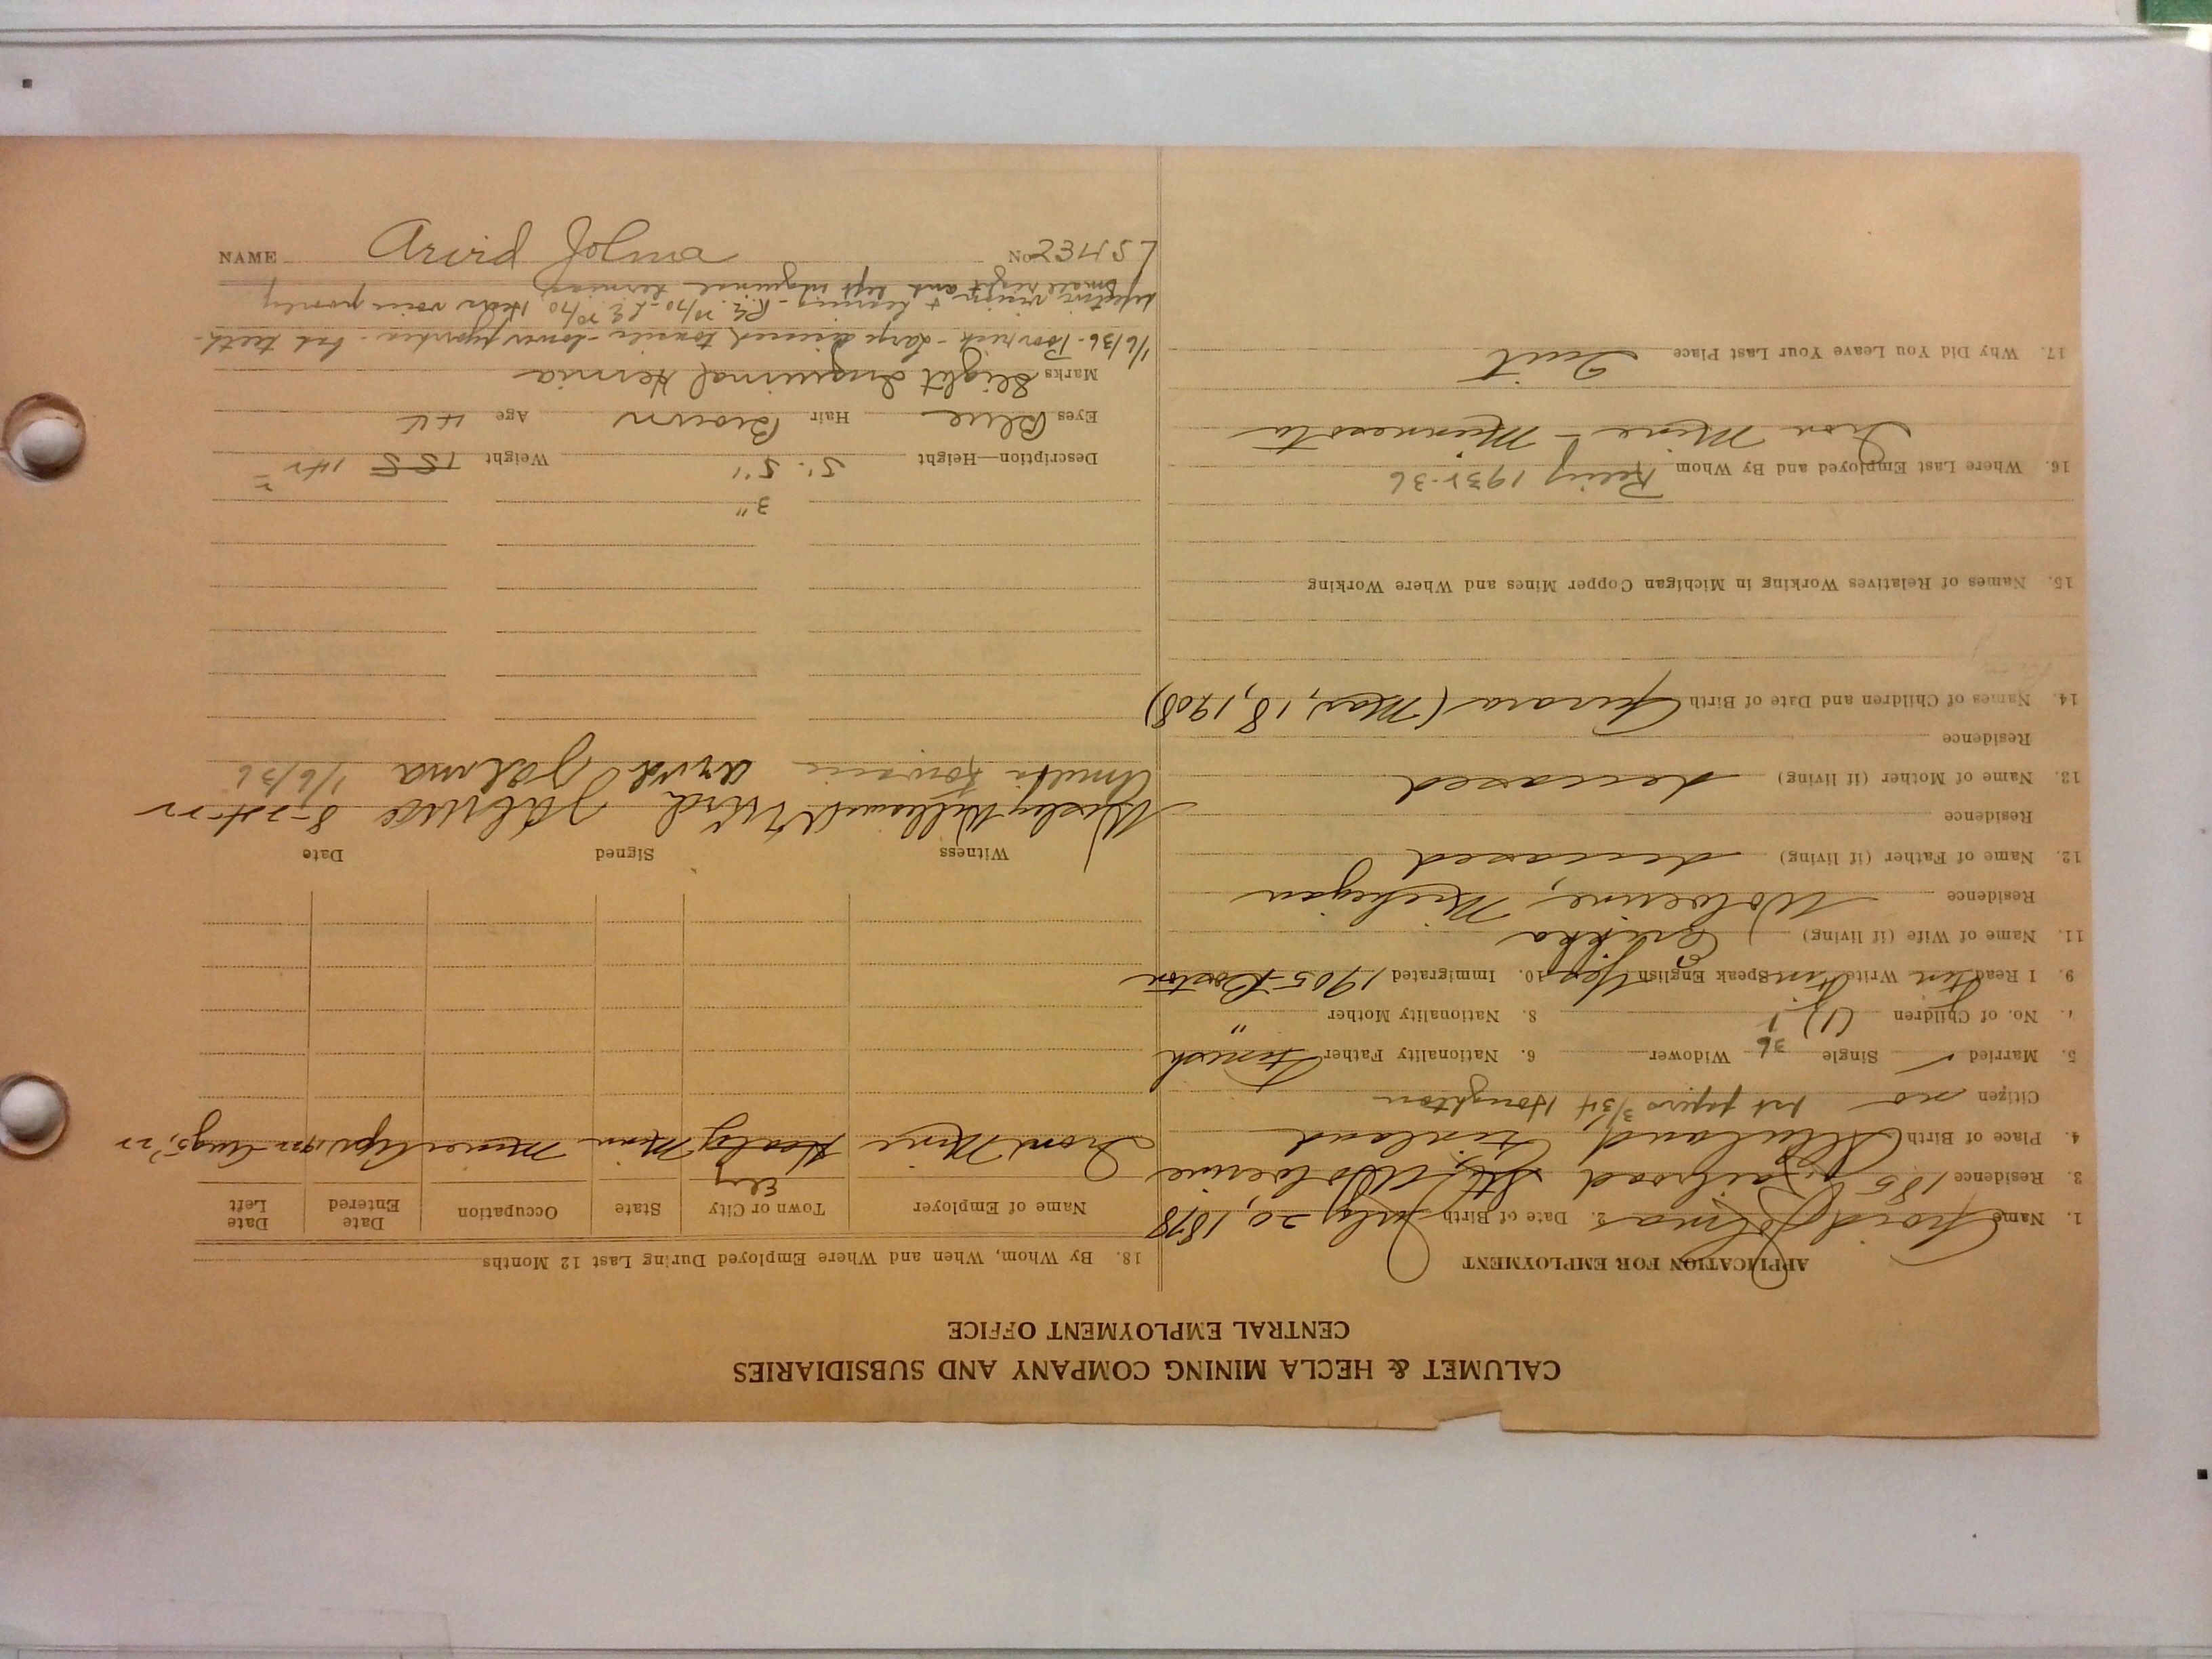 CALUMET & HECLA MINING COMPANY AND SUBSIDIARIES
CENTRAL EMPLOYMENT OFFICE
APPLICATION FOR EMPLOYMENT
1. Name Arvid Jolma 2. Date of Birth July 20, 1878
3. Residence 185 Railroad St., Wolverine
4. Place of Birth Finland
Citizen no 1st papers 3/34 Houghton
5. Married ✓ Single Widower 36 6. Nationality Father Finnish
7. No. of Children (1) 1 8. Nationality Mother "
9. I Read Finn Write Finn Speak English Yes 10. Immigrated 1905 Boston
11. Name of Wife (if living)
Residence Wolverine, Michigan
12. Name of Father (if living) deceased
Residence
13. Name of Mother (if living) deceased
Residence
14. Names of Children and Date of Birth (Mar, 18, 1908)
15. Names of Relatives Working in Michigan Copper Mines and Where Working
16. Where Last Employed and By Whom
Iron Mine - Minnesota
17. Why Did You Leave Your Last Place Quit
18. By Whom, When and Where Employed During Last 12 Months
Name of Employer Town or City State Occupation Date Entered Date Left
Ely
Iron Mine Minn Miner Apr 1922 Aug 5, 22
Witness Signed Date
Wesley Williams Arvid Jolma 8-24-22
Arvid Jolma 1/6/36
3"
Description—Height 5' 5" Weight 155
Eyes Blue Hair Brown Age 44
Marks Slight Inguinal Hernia
1/6/36 - Poor risk - Large diseased tonsils - lower pyorrhea - bad teeth -
defective vision + hearing - Hears voice poorly
small right and left inguinal hernias
NAME Arvid Jolma No 23457